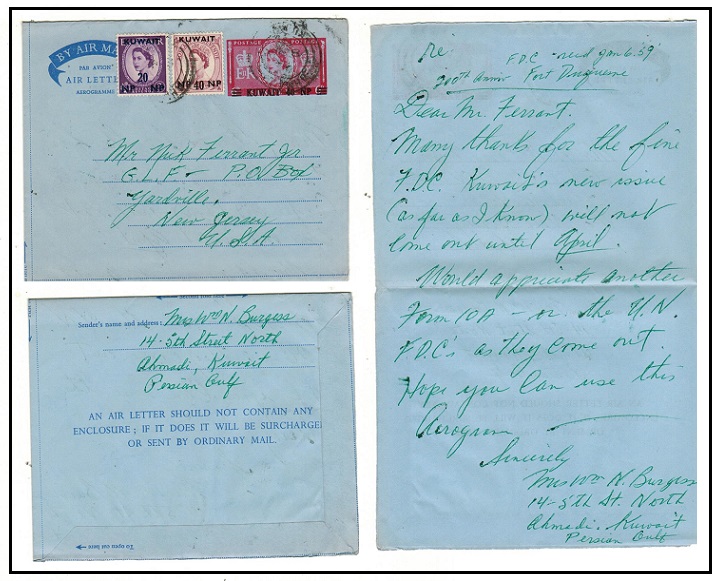 BY AIR MA
PAR AVION
AIR LETTE
AEROGRAMME
KUWAIT
20
NP NP
KUWAIT
NP 40 NP
POSTAGE POSTAGE
KUWAIT 40 NP
Mr Nick Ferrant Jr.
G.L.F - P.O Box
Yardville,
New Jersey
U.S.A.
Sender's name and address: Mrs Wm N. Burgess
14-5th Street North
Ahmadi, Kuwait
Persian Gulf
AN AIR LETTER SHOULD NOT CONTAIN ANY
ENCLOSURE; IF IT DOES IT WILL BE SURCHARGE
OR SENT BY ORDINARY MAIL.
To open cut here
re: F.D.C - recd Jan 6.59
200th Anniv Fort Duquesne
Dear Mr. Ferrant.
Many thanks for the fine
F.D.C. Kuwait's new issue
(as far as I know) will not
come out until April.
Would appreciate another
Form 10A - or the U.N.
F.D.C's as they come out.
Hope you can use this
Aerogram
Sincerely
Mrs Wm N. Burgess
14-5th St. North
Ahmadi. Kuwait
Persian Gulf